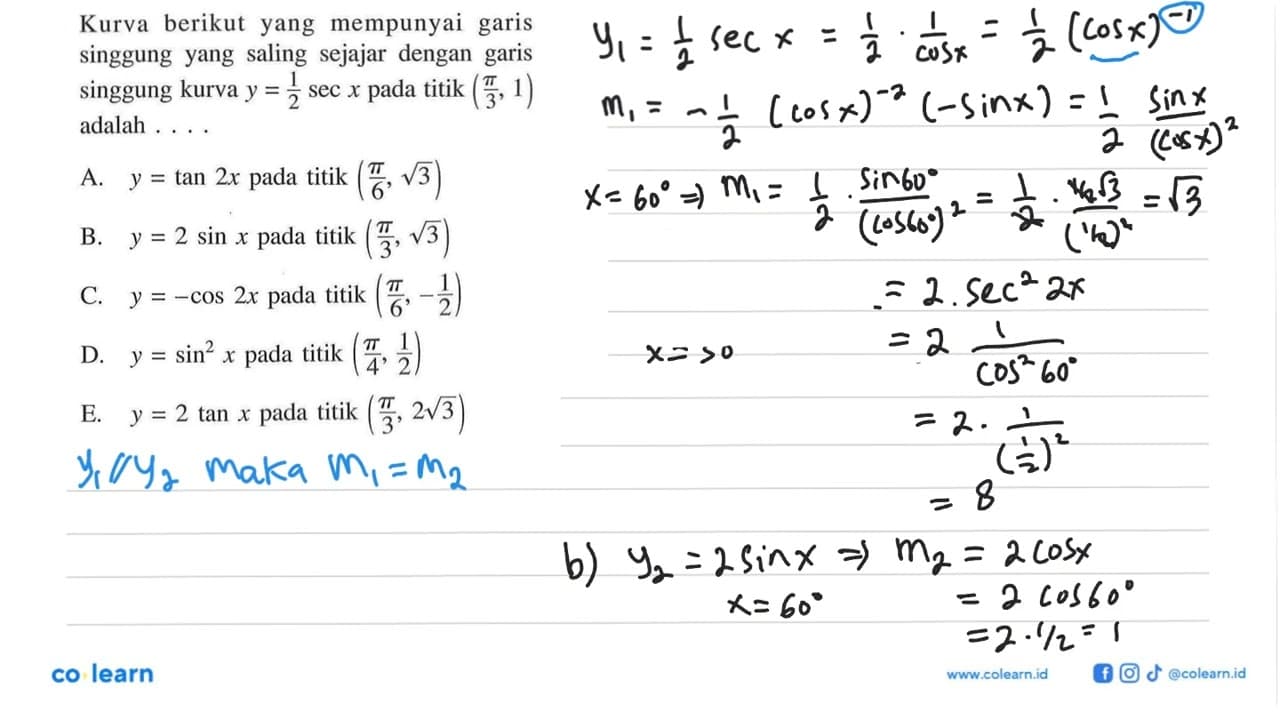 Kurva berikut yang mempunyai garis
singgung yang saling sejajar dengan garis
singgung kurva y = 1/2 sec x pada titik (π/3, 1)
adalah . . . .
A. y = tan 2x pada titik (π/6, √3)
B. y = 2 sin x pada titik (π/3, √3)
C. y = −cos 2x pada titik (π/6, −1/2)
D. y = sin² x pada titik (π/4, 1/2)
E. y = 2 tan x pada titik (π/3, 2√3)
y₁ // y₂ maka m₁ = m₂
y₁ = 1/2 sec x = 1/2 · 1/cos x = 1/2 (cos x)⁻¹
m₁ = −1/2 (cos x)⁻² (−sin x) = 1/2 sin x/(cos x)²
x = 60° ⇒ m₁ = 1/2 · sin 60°/(cos 60°)² = 1/2 · 1/2√3/(1/2)² = √3
= 2 . sec² 2x
x = 30
= 2 1/cos² 60°
= 2 · 1/(1/2)²
= 8
b) y₂ = 2 sin x ⇒ m₂ = 2 cos x
x = 60°
= 2 cos 60°
= 2 · 1/2 = 1
co learn
www.colearn.id
@colearn.id